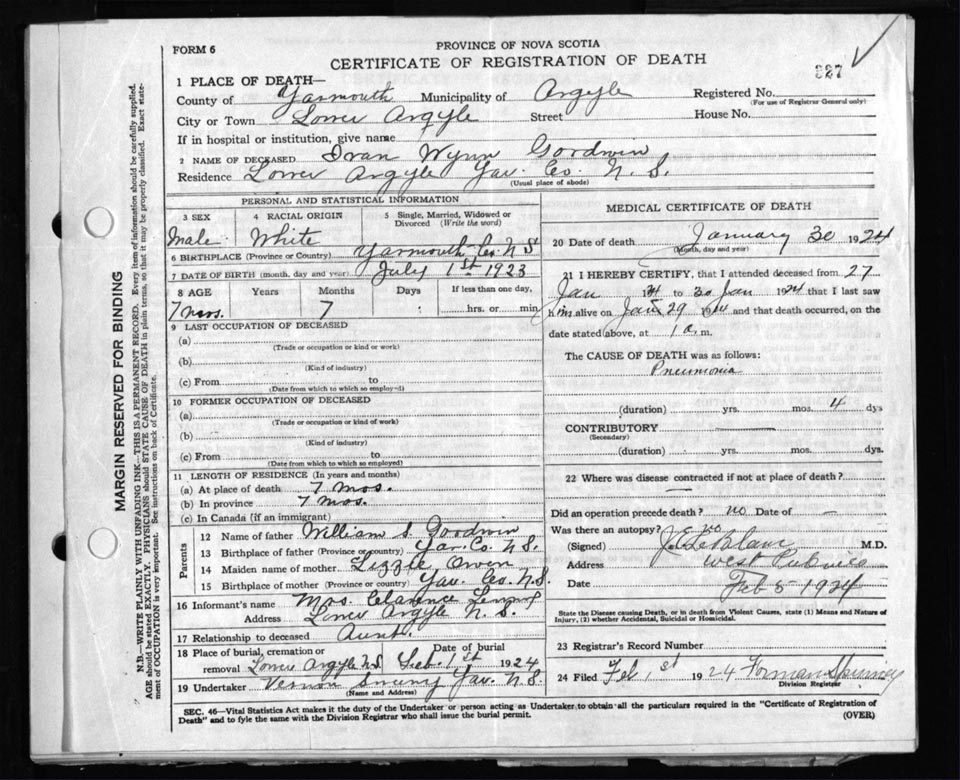 FORM 6
PROVINCE OF NOVA SCOTIA
CERTIFICATE OF REGISTRATION OF DEATH
327
1 PLACE OF DEATH—
County of Yarmouth Municipality of Argyle Registered No.
(For use of Registrar General only)
City or Town Lower Argyle Street House No.
If in hospital or institution, give name
2 NAME OF DECEASED Ivan Wynn Goodwin
Residence Lower Argyle Yar. Co. N. S.
(Usual place of abode)
PERSONAL AND STATISTICAL INFORMATION
3 SEX 4 RACIAL ORIGIN 5 Single, Married, Widowed or Divorced (Write the word)
Male White
6 BIRTHPLACE (Province or Country) Yarmouth Co. N S
7 DATE OF BIRTH (month, day and year) July 1st 1923
8 AGE Years Months Days If less than one day,
7 mos. 7 hrs. or min
9 LAST OCCUPATION OF DECEASED
(a)
(Trade or occupation or kind or work)
(b)
(Kind of industry)
(c) From to
(Date from which to which so employed)
10 FORMER OCCUPATION OF DECEASED
(a)
(Trade or occupation or kind of work)
(b)
(Kind of industry)
(c) From to
(Date from which to which so employed)
11 LENGTH OF RESIDENCE (In years and months)
(a) At place of death 7 mos.
(b) In province 7 mos.
(c) In Canada (if an immigrant)
Parents
12 Name of father William S. Goodwin
13 Birthplace of father (Province or country) Yar. Co. N. S.
14 Maiden name of mother Lizzie Owen
15 Birthplace of mother (Province or country) Yar. Co. N. S.
16 Informant's name Mrs. Clarence
Address Lower Argyle N. S.
17 Relationship to deceased Aunt.
18 Place of burial, cremation or removal Date of burial
Lower Argyle N.S. Feb. 1st 1924
19 Undertaker Vernon Yar. N. S.
(Name and Address)
MEDICAL CERTIFICATE OF DEATH
20 Date of death January 30 1924
(Month, day and year)
21 I HEREBY CERTIFY, that I attended deceased from 27
Jan 1924 to 30 Jan 1924 that I last saw
him alive on Jan 29 and that death occurred, on the
date stated above, at 1 a m.
The CAUSE OF DEATH was as follows:
Pneumonia
(duration) yrs. mos. 4 dys
CONTRIBUTORY
(Secondary)
(duration) yrs. mos. dys.
22 Where was disease contracted if not at place of death? —
Did an operation precede death? no Date of —
Was there an autopsy? no
(Signed) LeBlanc M.D.
Address West Pubnico
Date Feb 5 1924
State the Disease causing Death, or in death from Violent Causes, state (1) Means and Nature of
Injury, (2) whether Accidental, Suicidal or Homicidal.
23 Registrar's Record Number
24 Filed Feb 1st 1924 Forman Spinney
Division Registrar
SEC. 46—Vital Statistics Act makes it the duty of the Undertaker or person acting as Undertaker to obtain all the particulars required in the "Certificate of Registration of
Death" and to fyle the same with the Division Registrar who shall issue the burial permit.
(OVER)
MARGIN RESERVED FOR BINDING
N.B.—WRITE PLAINLY WITH UNFADING INK—THIS IS A PERMANENT RECORD. Every item of information should be carefully supplied.
AGE should be stated EXACTLY. PHYSICIANS should STATE CAUSE OF DEATH in plain terms, so that it may be properly classified. Exact state-
ment of OCCUPATION is very important. See instructions on back of Certificate.